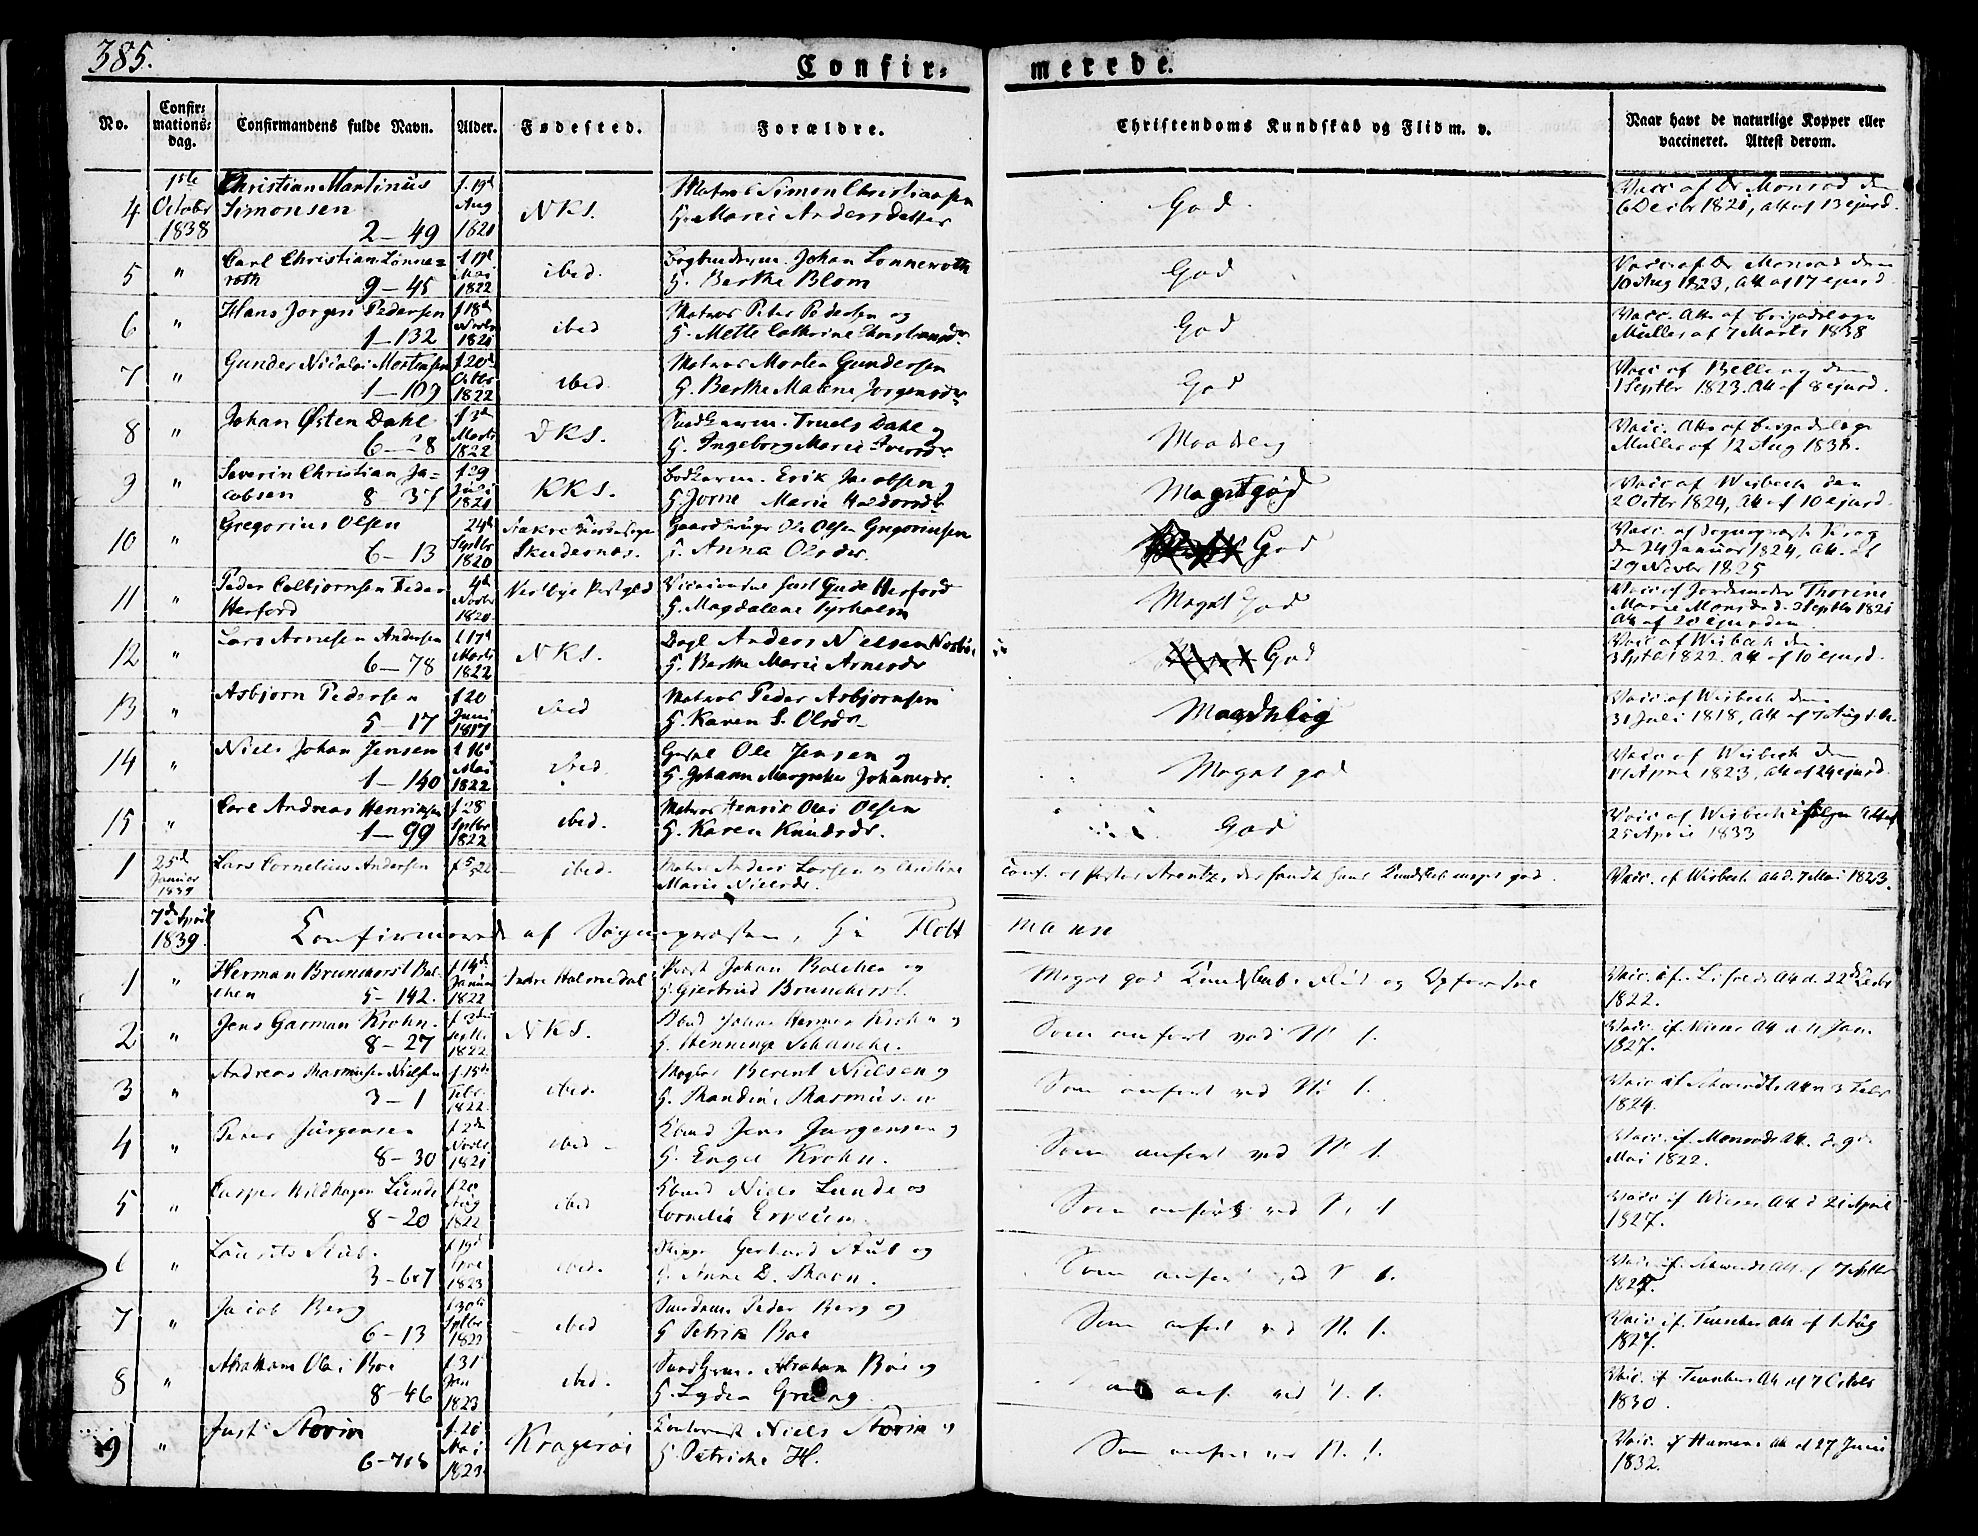 385.
Confir=
merede.
No.
Confir=
mations=
dag.
Confirmandens fulde Navn.
Alder.
Fødested.
Forældre.
Christendoms Kundskab og Flid m. v.
Naar havt de naturlige Kopper eller
vaccineret. Attest derom.
4
1ste
October
1838
Christian Martinus
Simonsen
2-49
f. 19d
Aug
1821
NKS.
Matros Simon Christiansen
H. Marie Andersdatter
God.
Vacc af Dr Monrad den
6 Decbr 1821, Att af 13 ejusd.
5
"
Carl Christian Lønne=
roth
9-45
f 19d
Mai
1822
ibed.
Bogbinderm. Johan Lonneroth
H. Berthe Blom
God
Vacc af Dr Monrad den
10 Aug 1823, Att af 17 ejusd.
6
"
Hans Jorgen Pedersen
1-132
f 18d
Novbr
1821
ibed
Matros Peter Pedersen og
H. Mette Cathrine
God
Vacc. Att af Brigadelæge
Müller af 7 Marts 1838
7
"
Gunder Nicolai Mortensen
1-109
f 20d
Octbr
1822
ibed.
Matros Morten Gundersen
H. Berthe Malene Jorgensdr
God
Vacc af den
1 Septbr 1823. Att af 8 ejusd.
8
"
Johan Østen Dahl
6-28
f 3d
Marts
1822
DKS.
Snedkerm. Truels Dahl og
H. Ingeborg Marie Iversdr
Maadelig
Vacc. Att af Brigadelæge
Müller af 12 Aug 1838.
9
"
Severin Christian Ja=
cobsen
8 37
f 29
Juli
1821
KKS.
Bødkerm. Erik Jacobsen og
H. Jorne Marie
Meget god
Vacc af Wisbech den
2 Octbr 1824, Att af 10 ejusd.
10
"
Gregorius Olsen
6-13
24d
Septbr
1820
Skudernæs.
Gaardbruger Ole Olsen Gregoriusen
H. Anna Olsdr.
God
Vacc. af Sognepræst
den 24 Januar 1824, Att. af
29 Novbr 1825
11
"
Peder Colbjørnsen Feder
Herford
9d
Novbr
1820.
Præstgjeld
Gude Herford
H. Magdalene Tyrholm
Meget God
Vacc af Jordemoder Thorine
Marie Monsdr d. 3 Septbr 1821
Att af 20 ejusdem
12
"
Lars Arnesen Andersen
6-78
f 17d
Marts
1822
NKS.
Dagl Anders Nielsen
H. Berthe Marie Arnesdr
God
Vacc af Wisbech den
3 Septbr 1822. Att af 10 ejusd.
13
"
Asbjorn Pedersen
5-17
f 20
Juni
1817
ibed
Matros Peder Asbjornsen
H. Karen S. Olsdr
Maadelig
Vacc. af Wisbech den
31 Juli 1818, Att af 7 Aug
14
"
Niels Johan Jensen
1-140
f 16d
Mai
1822
ibed.
Ole Jensen og
H. Johann Margrethe Johansdr.
Meget god
Vacc af Wisbech den
17 April 1823, Att af 24 ejusd.
15
"
Carl Andreas Henriksen
1-99
f 28
Septbr
1822
ibed.
Matros Henrik Olai Olsen
H. Karen Knudsdr.
God
Vacc af Wisbech ifølge Att af
25 April 1833
1
25d
Januar
1839
Lars Cornelius Andersen
f 5/5 22
ibed.
Matros Anders Larsen og Christine
Marie Nielsdr.
Conf. af Pastor Arentz, der fandt hans Kundskab meget god.
Vacc. af Wisbech Att d. 7 Mai 1823.
7de April
1839.
Confirmerede af Sognepræsten, Hr Flott
mann
1
"
Herman Brunchorst Bal=
chen
5-142.
f 14d
Januar
1822
Indre Holmedal
Præst Johan Balchen og
H. Gjertrud Brunchorst.
Meget god Kundskab, Flid og Opførsel
Vacc. if. Att d. 22de Decbr
1822.
2
"
Jens Garman Krohn.
8-27
f 3d
Septbr.
1822
NKS.
Kbmd Johan Herman Krohn og
H. Henninge Schancke.
Som anført ved N. 1.
Vacc. if. Wiesn Att d. 4 Jan.
1827.
3
"
Andreas Rasmusen Nielsen
3-1
f. 15d
Febr.
1822
ibed.
Mægler Berent Nielsen og
H. Randine Rasmusen
Som anført ved N. 1.
Vacc if Schwendts Att 3 Febr
1824.
4
"
Peter Jürgensen
8-30
f 2d
Novbr.
1821
ibed
Kbmd Jens Jurgensen og
H. Engel Krohn.
Som anført ved N. 1.
Vacc. if. Monrads Att. d. 9d
Mai 1822.
5
"
Casper Wildhagen Lunde
8-20
f. 20
Aug
1822
ibed
Kbmd Niels Lunde og
Cornelia Erpecum.
Som anført ved N. 1
Vacc if Wiesn Att d 21 April
1827.
6
"
Laurits Stub.
3-607
f 19d
1823
ibed.
Skipper Gerhard Stub og
H. Anne D. Ravn.
Som anført ved N 1.
Vacc. if. Schwendts Att. af 7 Septbr
1827.
7
"
Jacob Berg
6-13
f 30te
Septbr
1822
ibed
Peder Berg og
H Petrik Boe
Som anført ved N. 1.
Vacc if. Teuschers Att af 1. Aug
1827.
8
"
Abraham Olai Boe
8-46
f. 31
Jan
1823
ibed.
Abraham Boe og
H. Lydia Grung.
Som anf. ved N. 1.
Vacc. if Teuschers Att af 7 Octobr
1830.
9
"
Just Storm
6-708
f. 20
Mai
1823
Kragerøe
Niels Storm og
H. Petriche H.
Som anført ved N. 1.
Vacc. if Att af 27 Juni
1832.